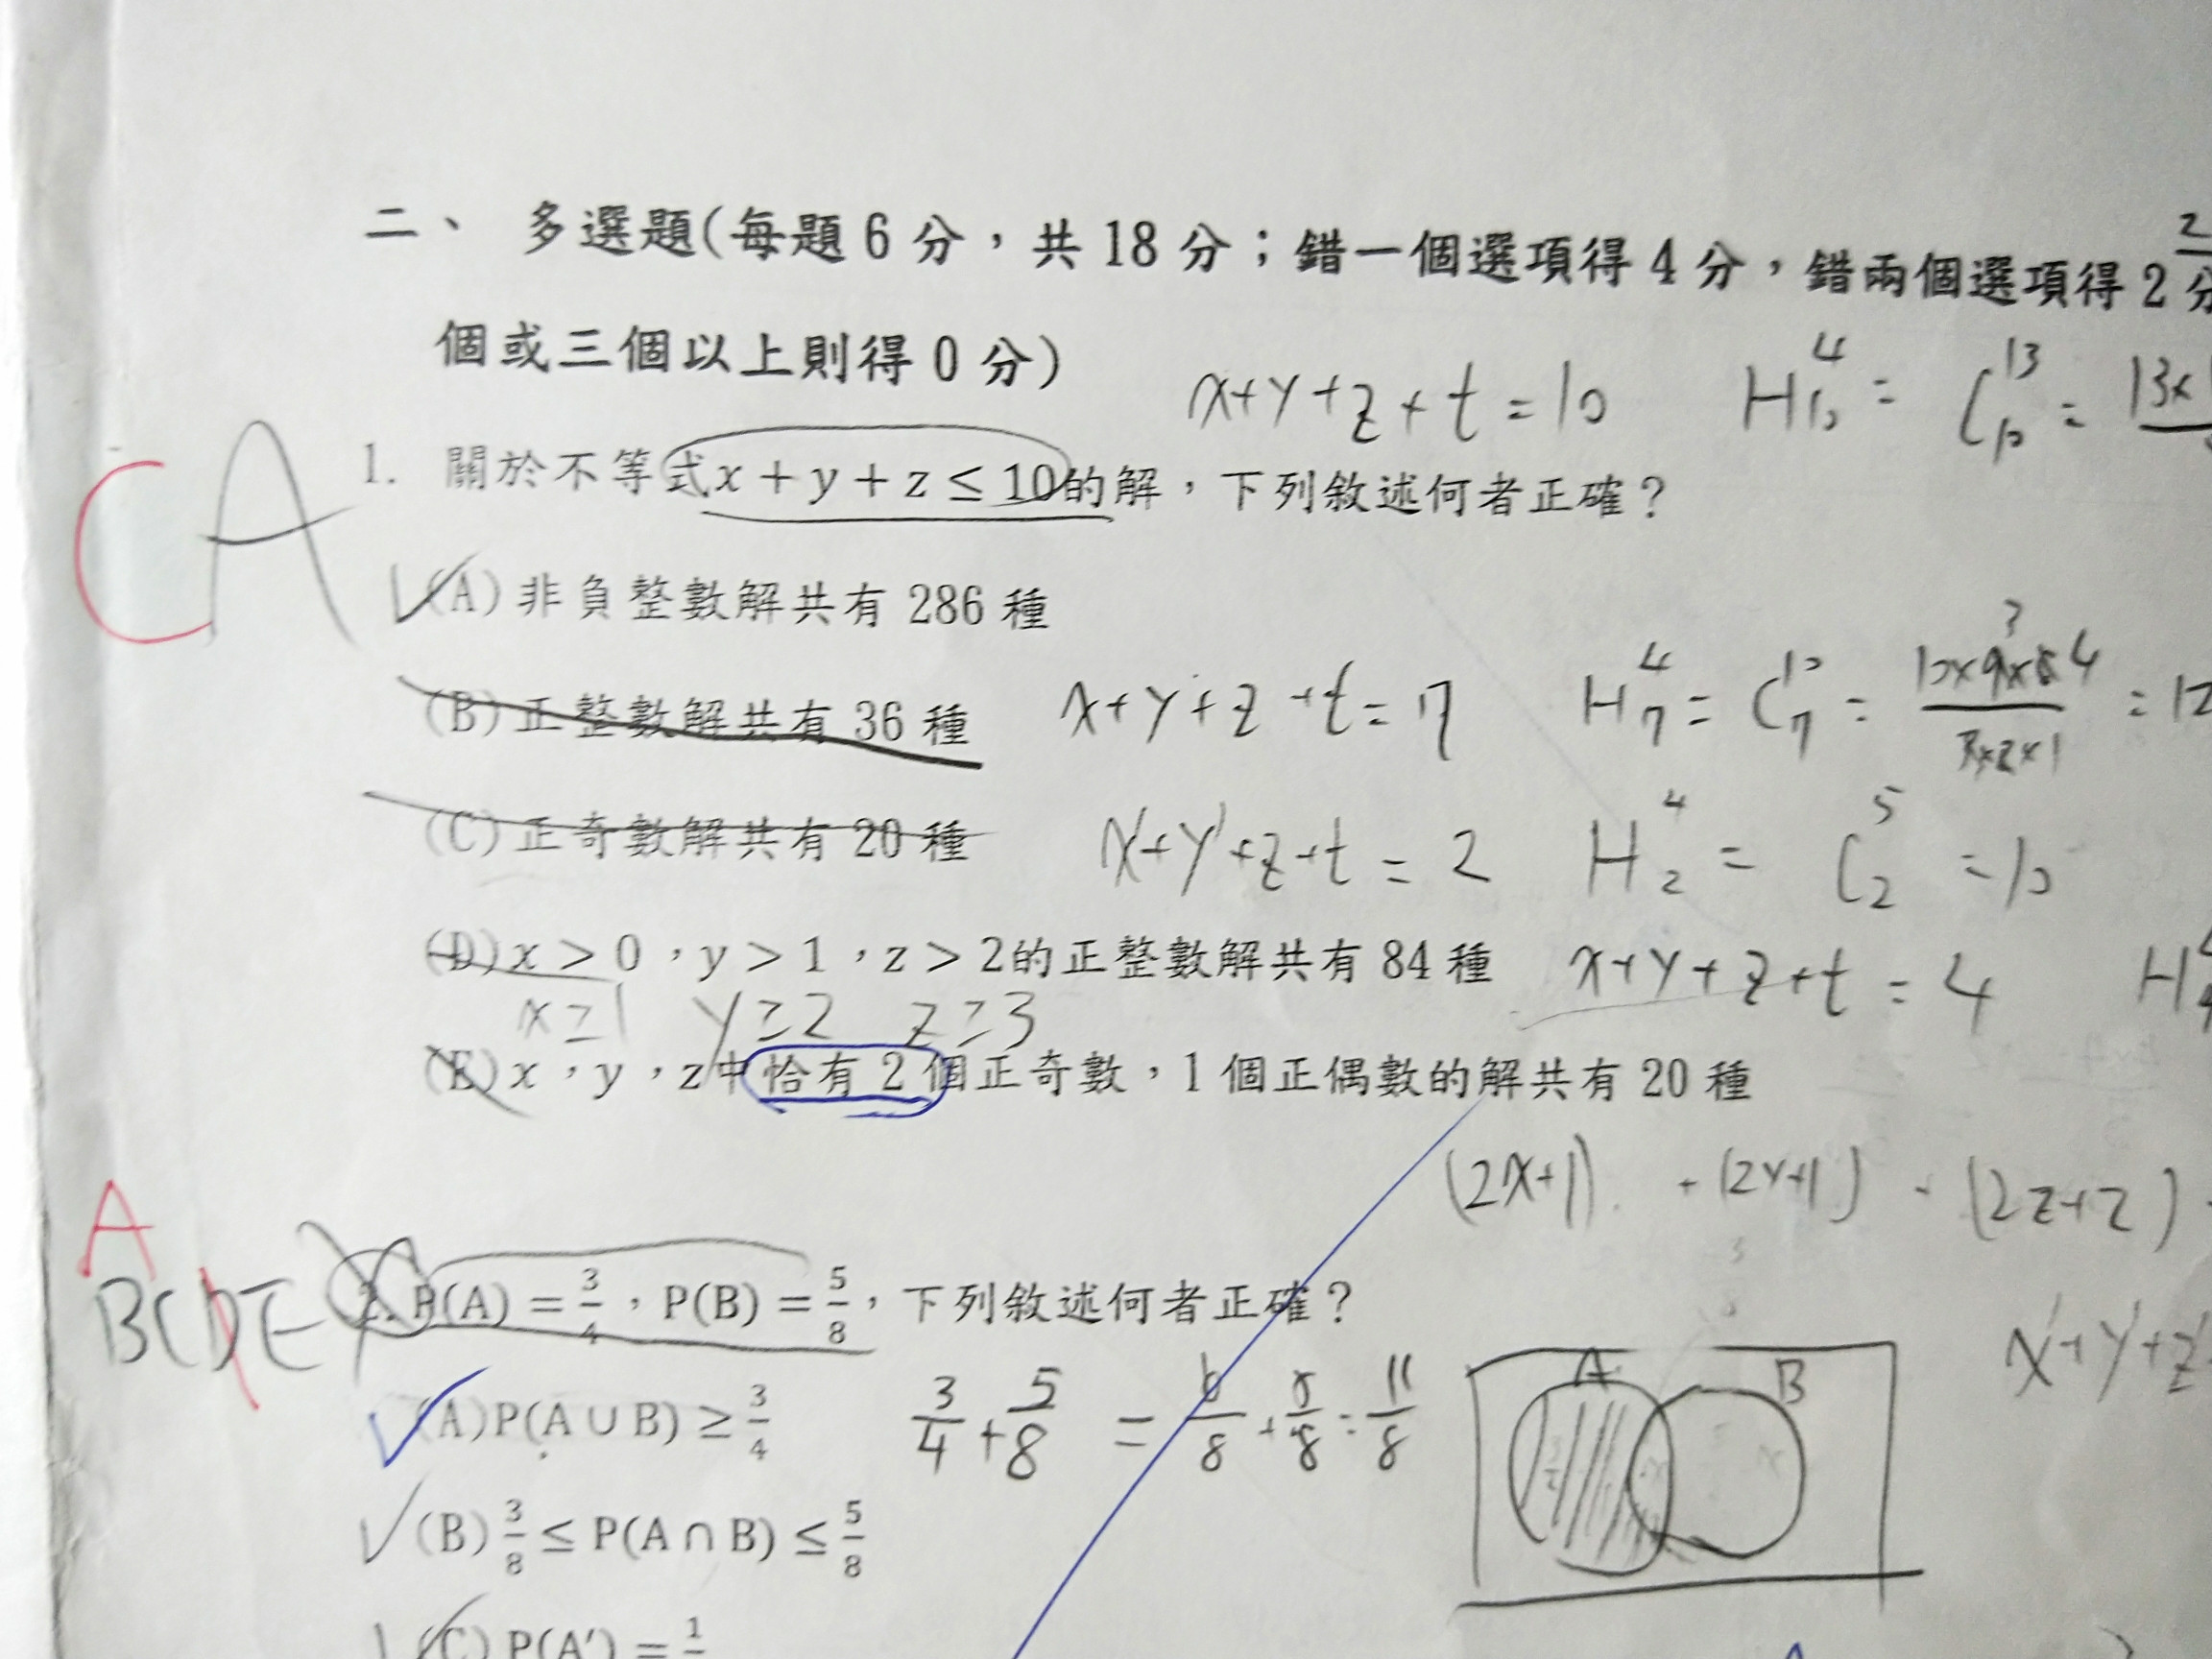 二、 多選題(每題 6 分，共 18 分；錯一個選項得 4 分，錯兩個選項得 2 分
個或三個以上則得 0 分)
x+y+z+t=10 H⁴₁₀ = C¹³₁₀ =
CA
1. 關於不等式x + y + z ≤ 10的解，下列敘述何者正確？
(A)非負整數解共有 286 種
(B)正整數解共有 36 種 x+y+z+t=7 H⁴₇ = C¹⁰₇ = 10×9×8/3×2×1 = 12
(C)正奇數解共有 20 種 x'+y'+z+t=2 H⁴₂ = C⁵₂ =10
(D)x > 0，y > 1，z > 2的正整數解共有 84 種 x+y+z+t=4 H
x≥1 y≥2 z≥3
(E)x，y，z中恰有 2 個正奇數，1 個正偶數的解共有 20 種
(2x+1) + (2y+1) + (2z+2)
A
BCDE
2. P(A) = 3/4，P(B) = 5/8，下列敘述何者正確？
x'+y'+z'
(A)P(A ∪ B) ≥ 3/4 3/4+5/8 = 6/8+5/8=11/8
A B
(B) 3/8 ≤ P(A ∩ B) ≤ 5/8
(C) P(A′) = 1